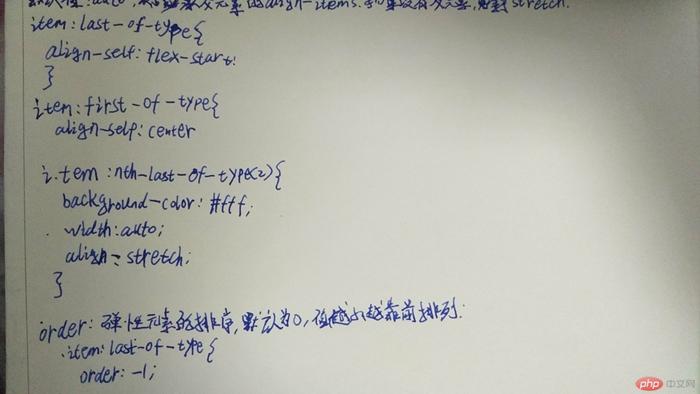 默认值:auto,继承父元素的align-items.如果没有父元素,则为stretch.
item:last-of-type{
align-self:flex-start;
}
item:first-of-type{
align-self:center
i.tem:nth-last-of-type(2){
background-color:#fff;
.width:auto;
align-stretch;
}
order:弹性元素的排序,默认为0,值越小越靠前排列.
.item:last-of-type{
order:-1;
php中文网